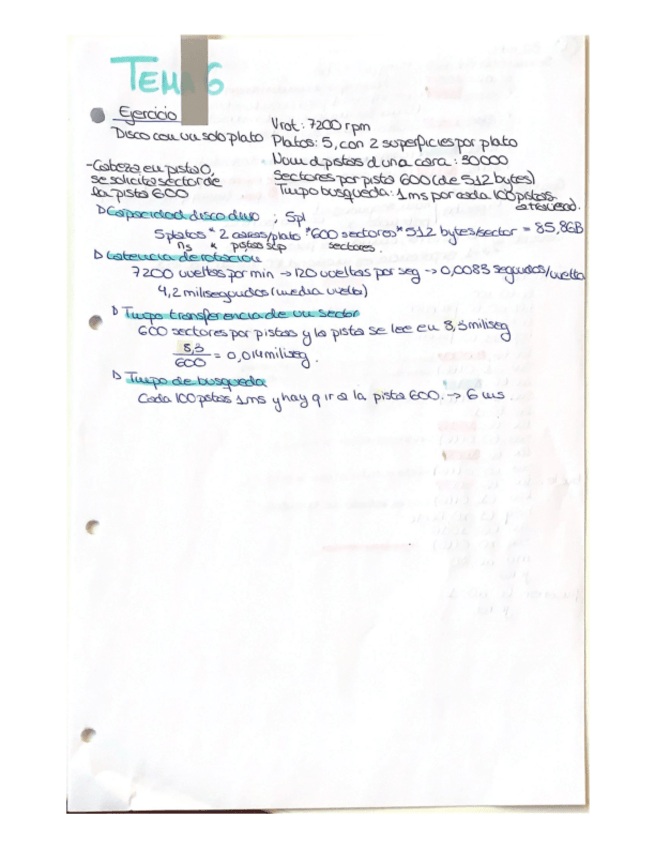 TEMA 6
Ejercicio
Disco con un solo plato
Vrot: 7200 rpm
Platos: 5, con 2 superficies por plato
Num d pistas d una cara: 30000
Sectores por pista 600 (de 512 bytes)
Tmpo busqueda: 1ms por cada 100 pistas
atravesad.
-Cabeza en pista 0,
se solicita sector de
la pista 600
▷ Capacidad disco duro ; 5pl
5platos * 2 caras/plato * 600 sectores * 512 bytes/sector = 85,8GB
ns * pistas sup sectores.
▷ Latencia de rotacion
7200 vueltas por min → 120 vueltas por seg → 0,0083 segundos/vuelta
4,2 milisegundos (media vuelta)
▷ Tmpo transferencia de un sector
600 sectores por pistas y la pista se lee en 8,3 miliseg
8,3
600 = 0,014 miliseg.
▷ Tmpo de busqueda
Cada 100 pistas 1ms y hay q ir a la pista 600. → 6 ms.